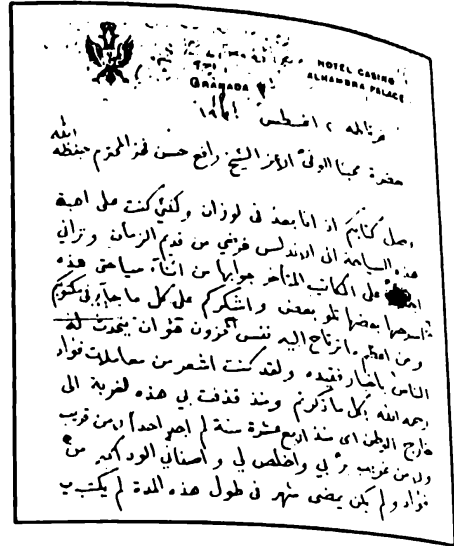 HOTEL CASINO
ALHAMBRA PALACE
GRANADA
غرناطه ٢ اغسطس
حضرة محبنا الوفيّ الأعز الشيخ رافع حسن فخر المحترم حفظه الله
وصل كتابكم اذ انا بعد في لوزان ولكني كنت على اهبة
هذه السياحة الى الاندلس من قديم الزمان وتراني
على الكاتب المتأخر جوابها من اثناء سياحتي هذه
بعضها تلو بعض واشكركم على كل ما جاء في مكتوبكم
ومن اعظم ما ترتاح اليه نفس المحزون هو ان يتحدث له
الناس باخبار فقيده ولقد كنت اشعر من معاملات فؤاد
رحمه الله بكل ما ذكرتم ومنذ قذفت بي هذه الغربة الى
خارج الوطن اي منذ اربع عشرة سنة لم اجد احداً لا من قريب
ولا من غريب برّ بي واخلص لي واصفاني الود اكثر من
فؤاد ولم يكن يمضي شهر في طول هذه المدة لم يكتب